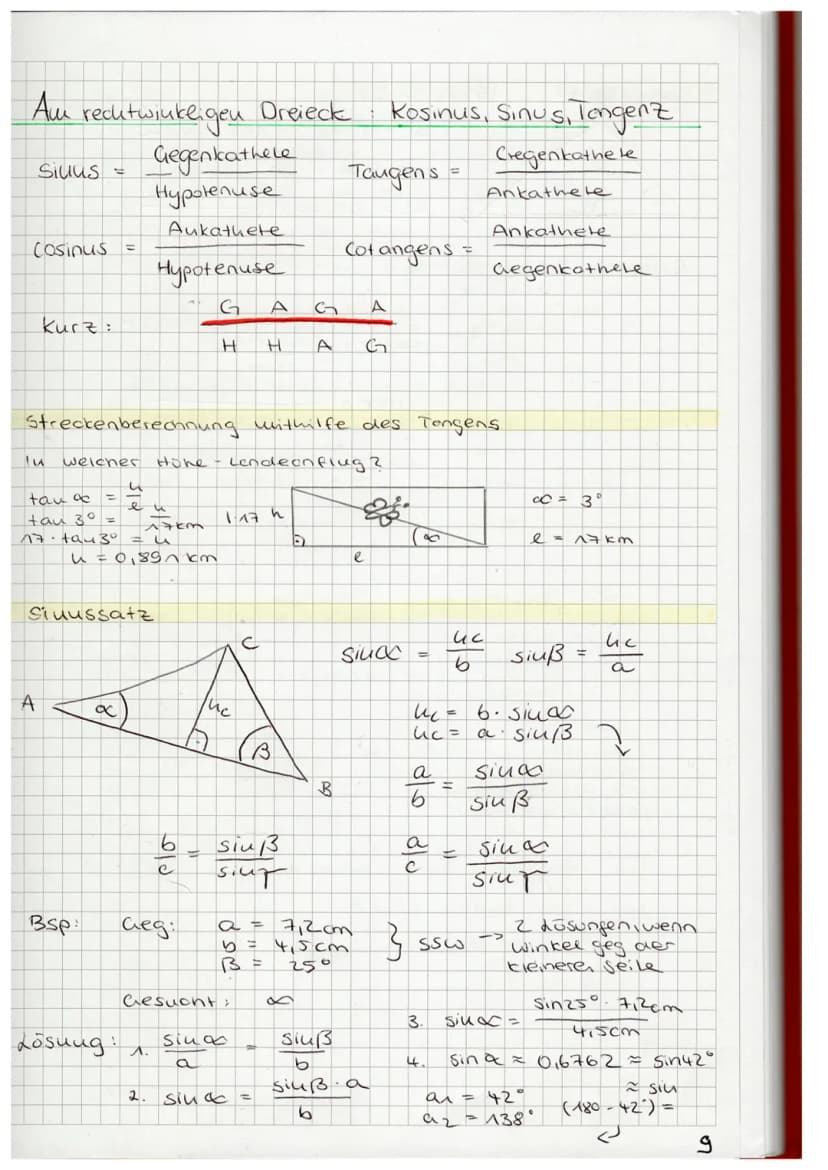 Am rechtwinkeligen Dreieck : Kosinus, Sinus, Tangenz
Sinus = Gegenkathete / Hypotenuse   Tangens = Gegenkathete / Ankathete
Cosinus = Ankathete / Hypotenuse   Cotangens = Ankathete / Gegenkathete
Kurz: G A G A
H H A G
Streckenberechnung mithilfe des Tangens
In welcher Höhe - Landeanflug?
tan α = h/e
tan 3° = h/17km | · 17
17 · tan 3° = h
h = 0,891 km
h
α
e
α = 3°
e = 17 km
Sinussatz
A α hc C β B
sin α = hc/b   sin β = hc/a
hc = b · sin α
hc = a · sin β
a/b = sin α / sin β
b/c = sin β / sin γ   a/c = sin α / sin γ
Bsp: Geg: a = 7,2 cm } ssw → 2 Lösungen, wenn
b = 4,5 cm   Winkel geg der
β = 25°   kleineren Seite
Gesucht: α
Lösung: 1. sin α / a = sin β / b
2. sin α = sin β · a / b
3. sin α = sin 25° · 7,2cm / 4,5cm
4. sin α ≈ 0,6762 ≈ sin 42°
≈ sin
a1 = 42°   (180 - 42°) =
a2 = 138°
9